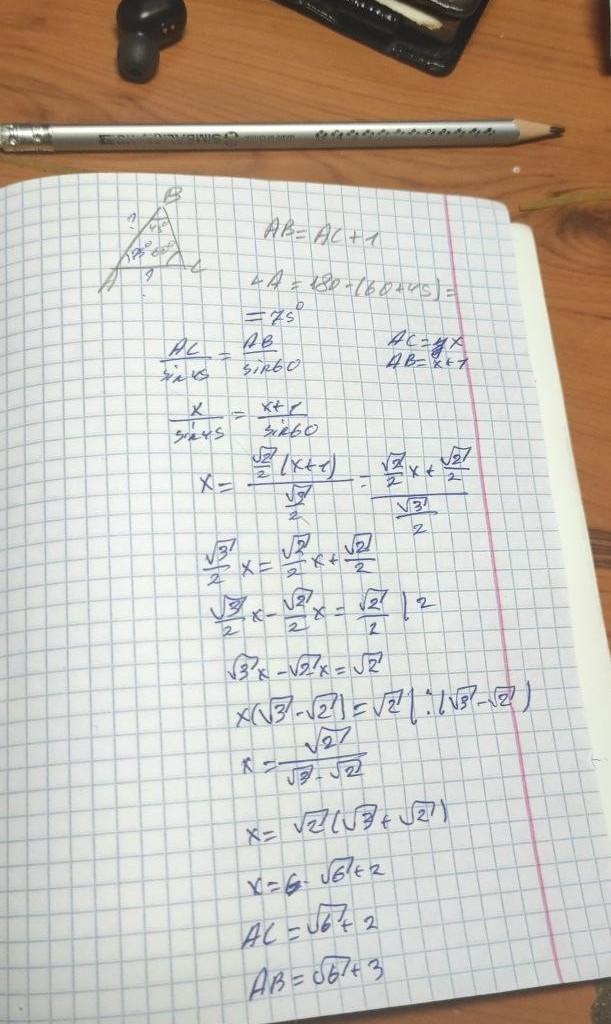 SIMBALION
B
?
45°
75°
60°
A
?
C
AB = AC + 1
∠A = 180 - (60 + 45) =
= 75°
AC/sin45 = AB/sin60
AC = x
AB = x + 1
x/sin45 = x+1/sin60
x = √2/2 (x+1) / √3/2 = √2/2 x + √2/2 / √3/2
√3/2 x = √2/2 x + √2/2
√3/2 x - √2/2 x = √2/2 | 2
√3 x - √2 x = √2
x(√3 - √2) = √2 | :(√3 - √2)
x = √2 / √3 - √2
x = √2 (√3 + √2)
x = √6 + 2
AC = √6 + 2
AB = √6 + 3